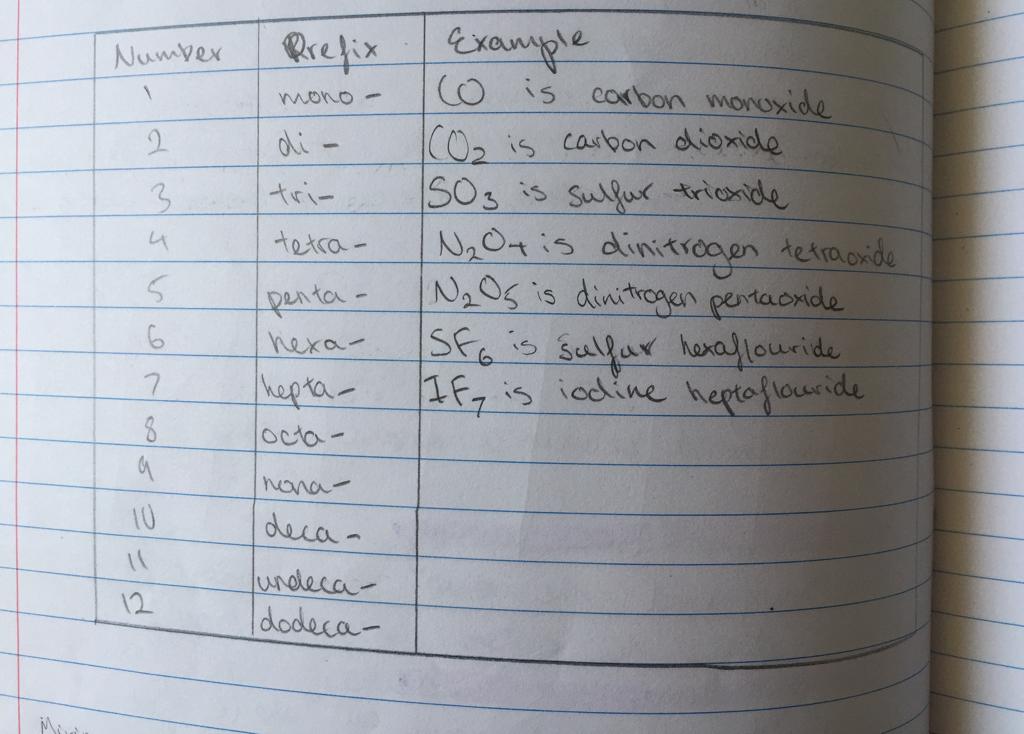 Number Prefix Example
1 mono- CO is carbon monoxide
2 di- CO2 is carbon dioxide
3 tri- SO3 is sulfur trioxide
4 tetra- N2O4 is dinitrogen tetraoxide
5 penta- N2O5 is dinitrogen pentaoxide
6 hexa- SF6 is sulfur hexaflouride
7 hepta- IF7 is iodine heptaflouride
8 octa-
9 nona-
10 deca-
11 undeca-
12 dodeca-